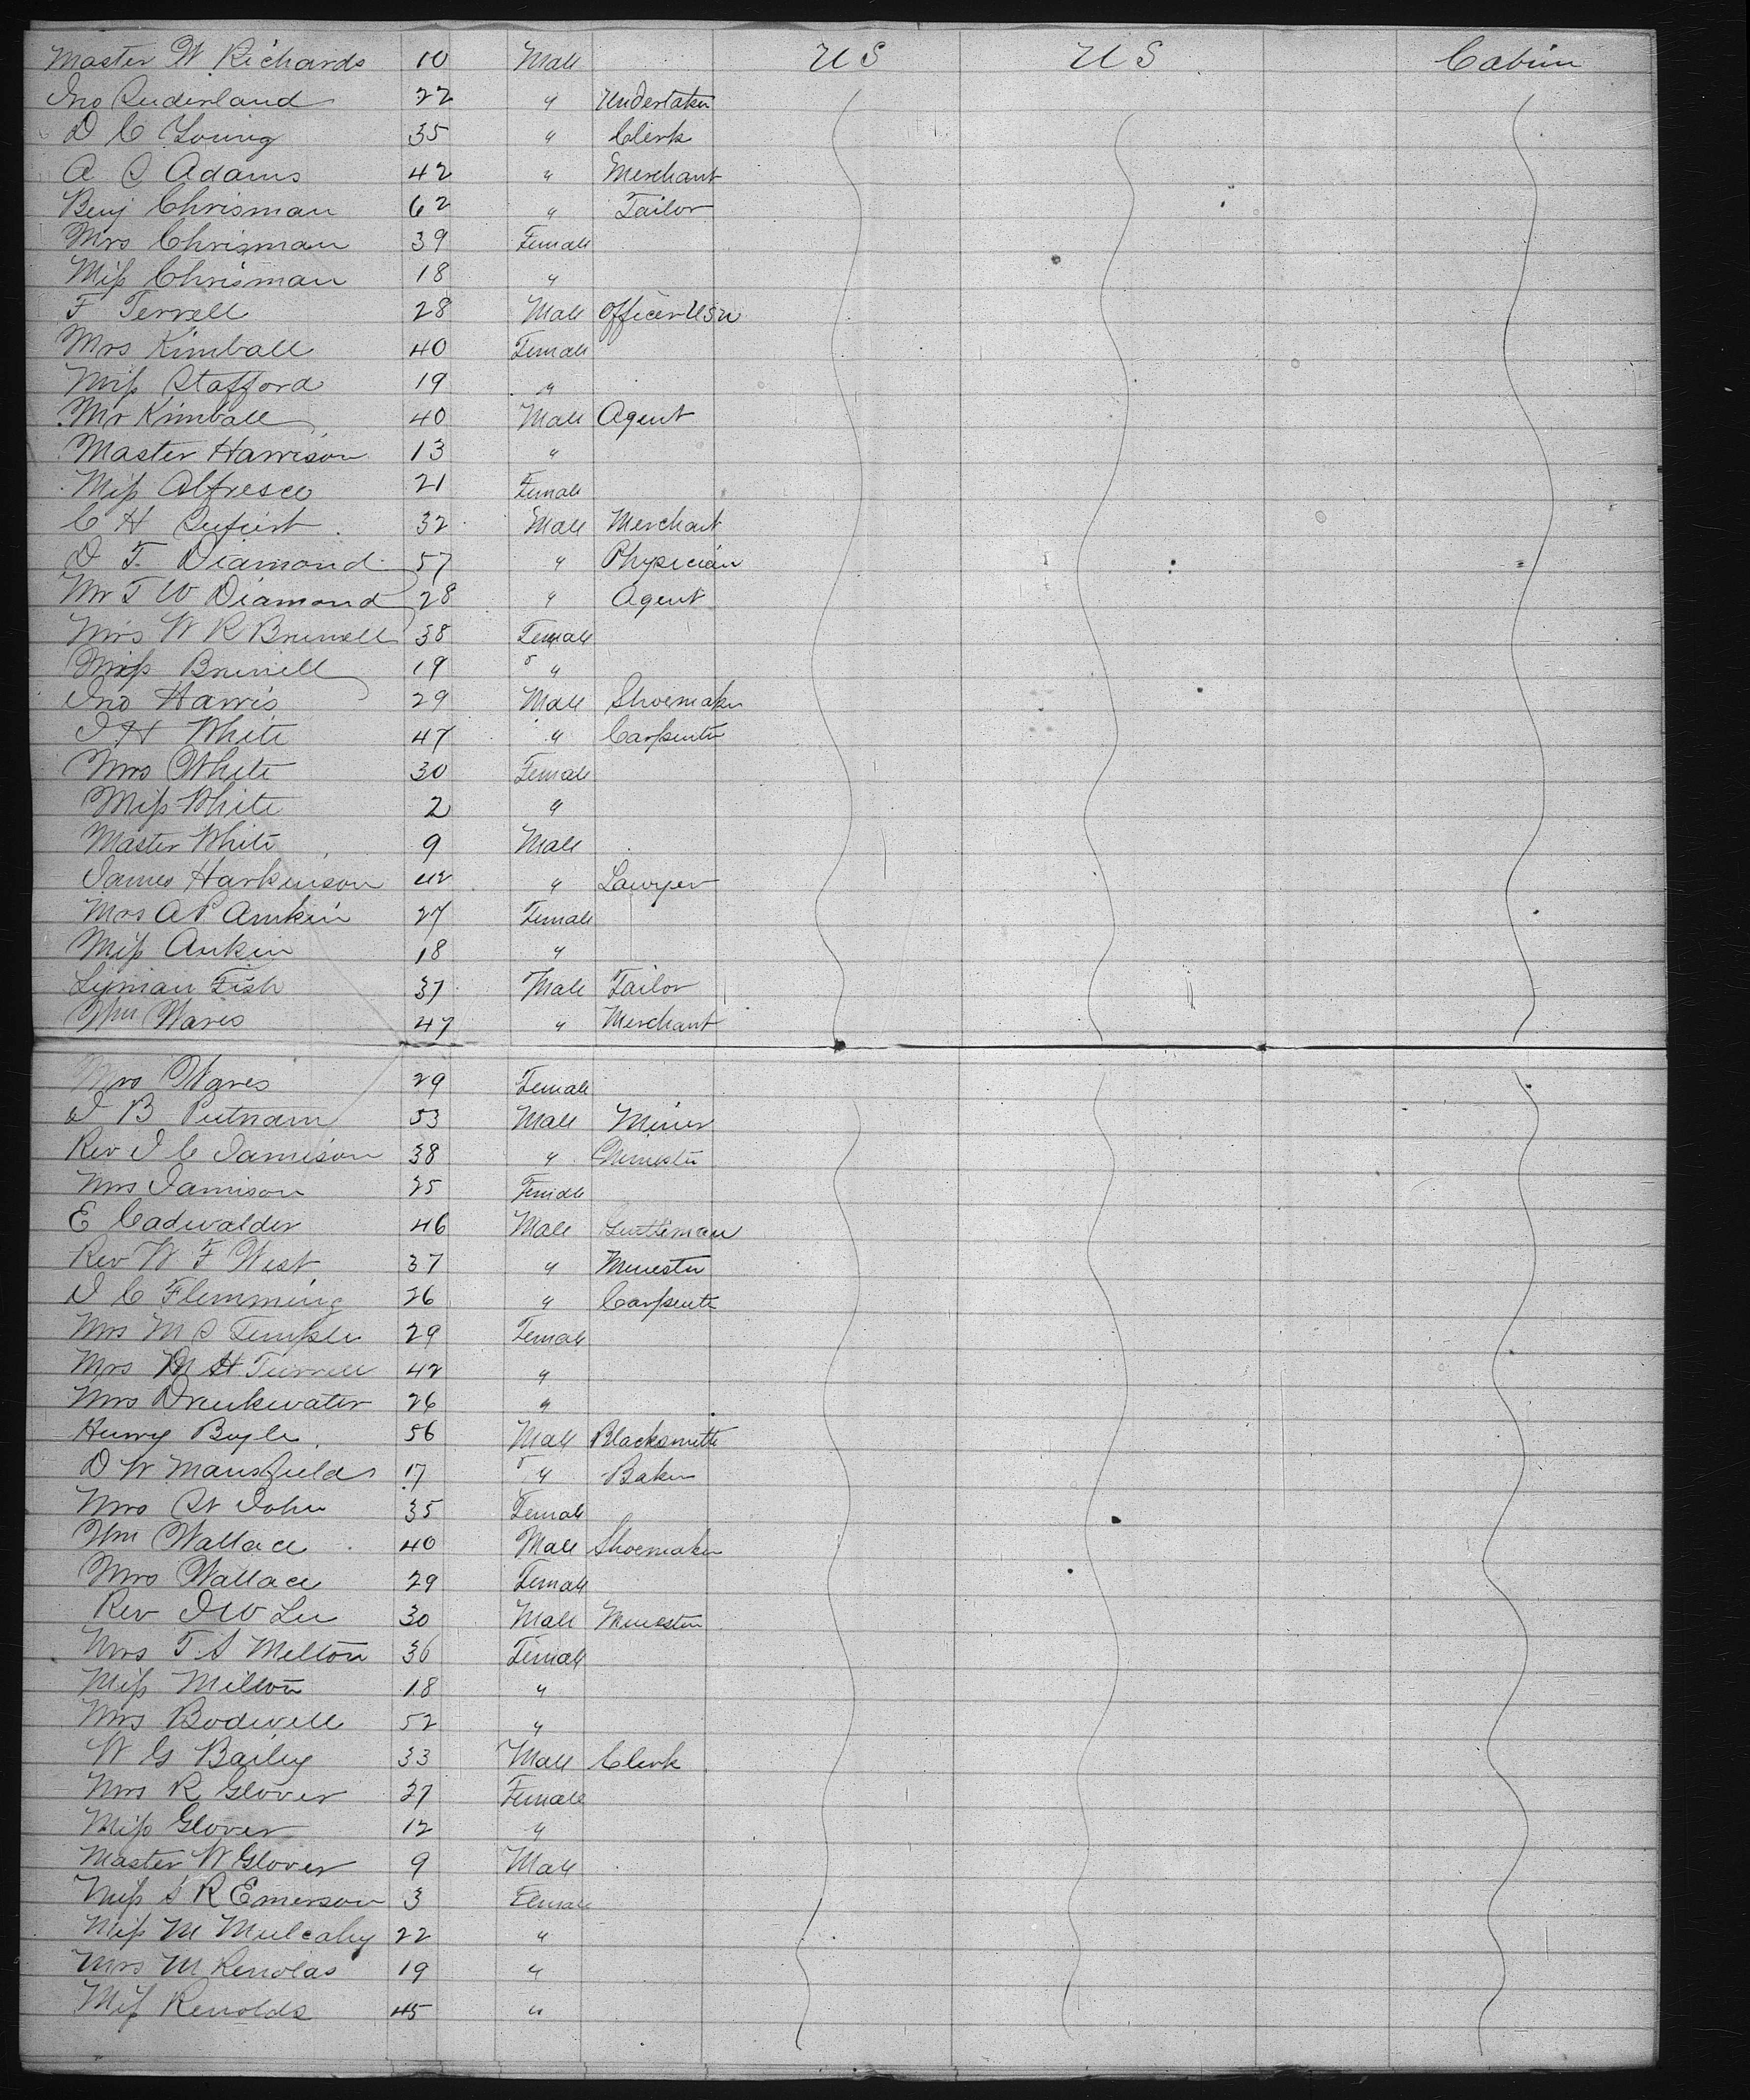 Master W. Richards 10 Male US US Cabin
Jno Suderland 22 " Undertaker
D C Young 35 " Clerk
A S Adams 42 " Merchant
Benj Chrisman 62 " Tailor
Mrs Chrisman 39 Female
Miss Chrisman 18 "
F Terrell 28 Male Officer USN
Mrs Kimball 40 Female
Miss Stafford 19 "
Mr Kimball 40 Male Agent
Master Harrison 13 "
Miss Alfresco 21 Female
C H 32 Male Merchant
D F. Diamond 57 " Physician
Mr T W Diamond 28 " Agent
Mrs W R Brunell 38 Female
Miss Brunell 19 "
Jno Harris 29 Male Shoemaker
J H White 47 " Carpenter
Mrs White 30 Female
Miss White 2 "
Master White 9 Male
James Harkinson 42 " Lawyer
Mrs A P Aunkin 27 Female
Miss Aukin 18 "
Lyman Fish 37 Male Tailor
Wm Wares 47 " Merchant
Mrs Wares 29 Female
J B Putnam 53 Male Miner
Rev J C Jamison 38 " Minester
Mrs Jamison 25 Female
E Cadwalder 46 Male Gentleman
Rev W F West 37 " Minester
J C Flemming 26 " Carpente
Mrs M S Temple 29 Female
Mrs M H Turrell 42 "
Mrs Drinkwater 26 "
Henry Boyle 56 Male Blacksmith
D W Mansfields 17 " Baker
Mrs St John 35 Female
Wm Wallace 40 Male Shoemaker
Mrs Wallace 29 Female
Rev J W Lee 30 Male Minester
Mrs T S Melton 36 Female
Miss Milton 18 "
Mrs Bodwell 52 "
W G Bailey 33 Male Clerk
Mrs R Glover 27 Female
Miss Glover 12 "
Master W Glover 9 Male
Miss S R Emerson 3 Female
Miss M Mulcahy 22 "
Mrs M Renolds 19 "
Miss Renolds 45 "